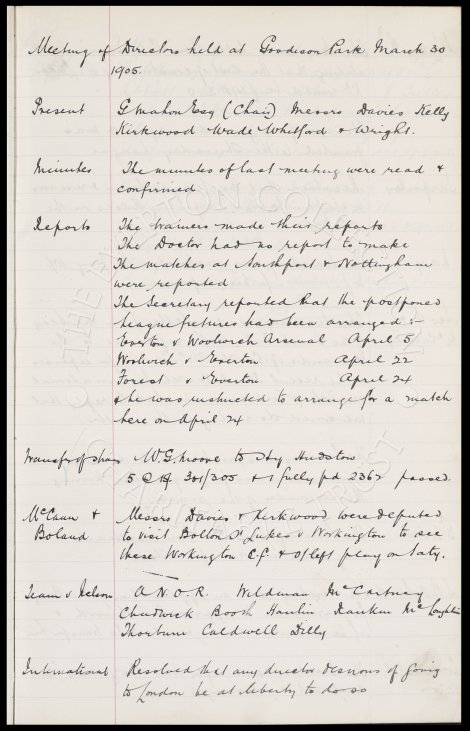 Meeting of Directors held at Goodison Park March 30
1905.
Present G Mahon Esq (Chair) Messrs Davies Kelly
Kirkwood Wade Whitford & Wright.
Minutes The minutes of last meeting were read &
confirmed
Reports The trainers made their reports
The Doctor had no report to make
The matches at Southport & Nottingham
were reported
The Secretary reported that the postponed
league fixtures had been arranged :-
Everton v Woolwich Arsenal April 5
Woolwich v Everton April 22
Forest v Everton April 24
& he was instructed to arrange for a match
here on April 24
Transfer of shares W.G. Moore to Hy Hudston
5 @ 301/305 & 1 fully pd 2367 passed.
McCann &
Boland
Messrs Davies & Kirkwood were deputed
to visit Bolton St Lukes v Workington to see
these Workington C.f. & O/left play on Saty.
Team v Nelson A.N.O.R. Wildman McCartney
Chadwick Booth Hanlin Rankin McLoughlin
Thorburn Caldwell Dilly
International Resolved that any director desirous of going
to London be at liberty to do so